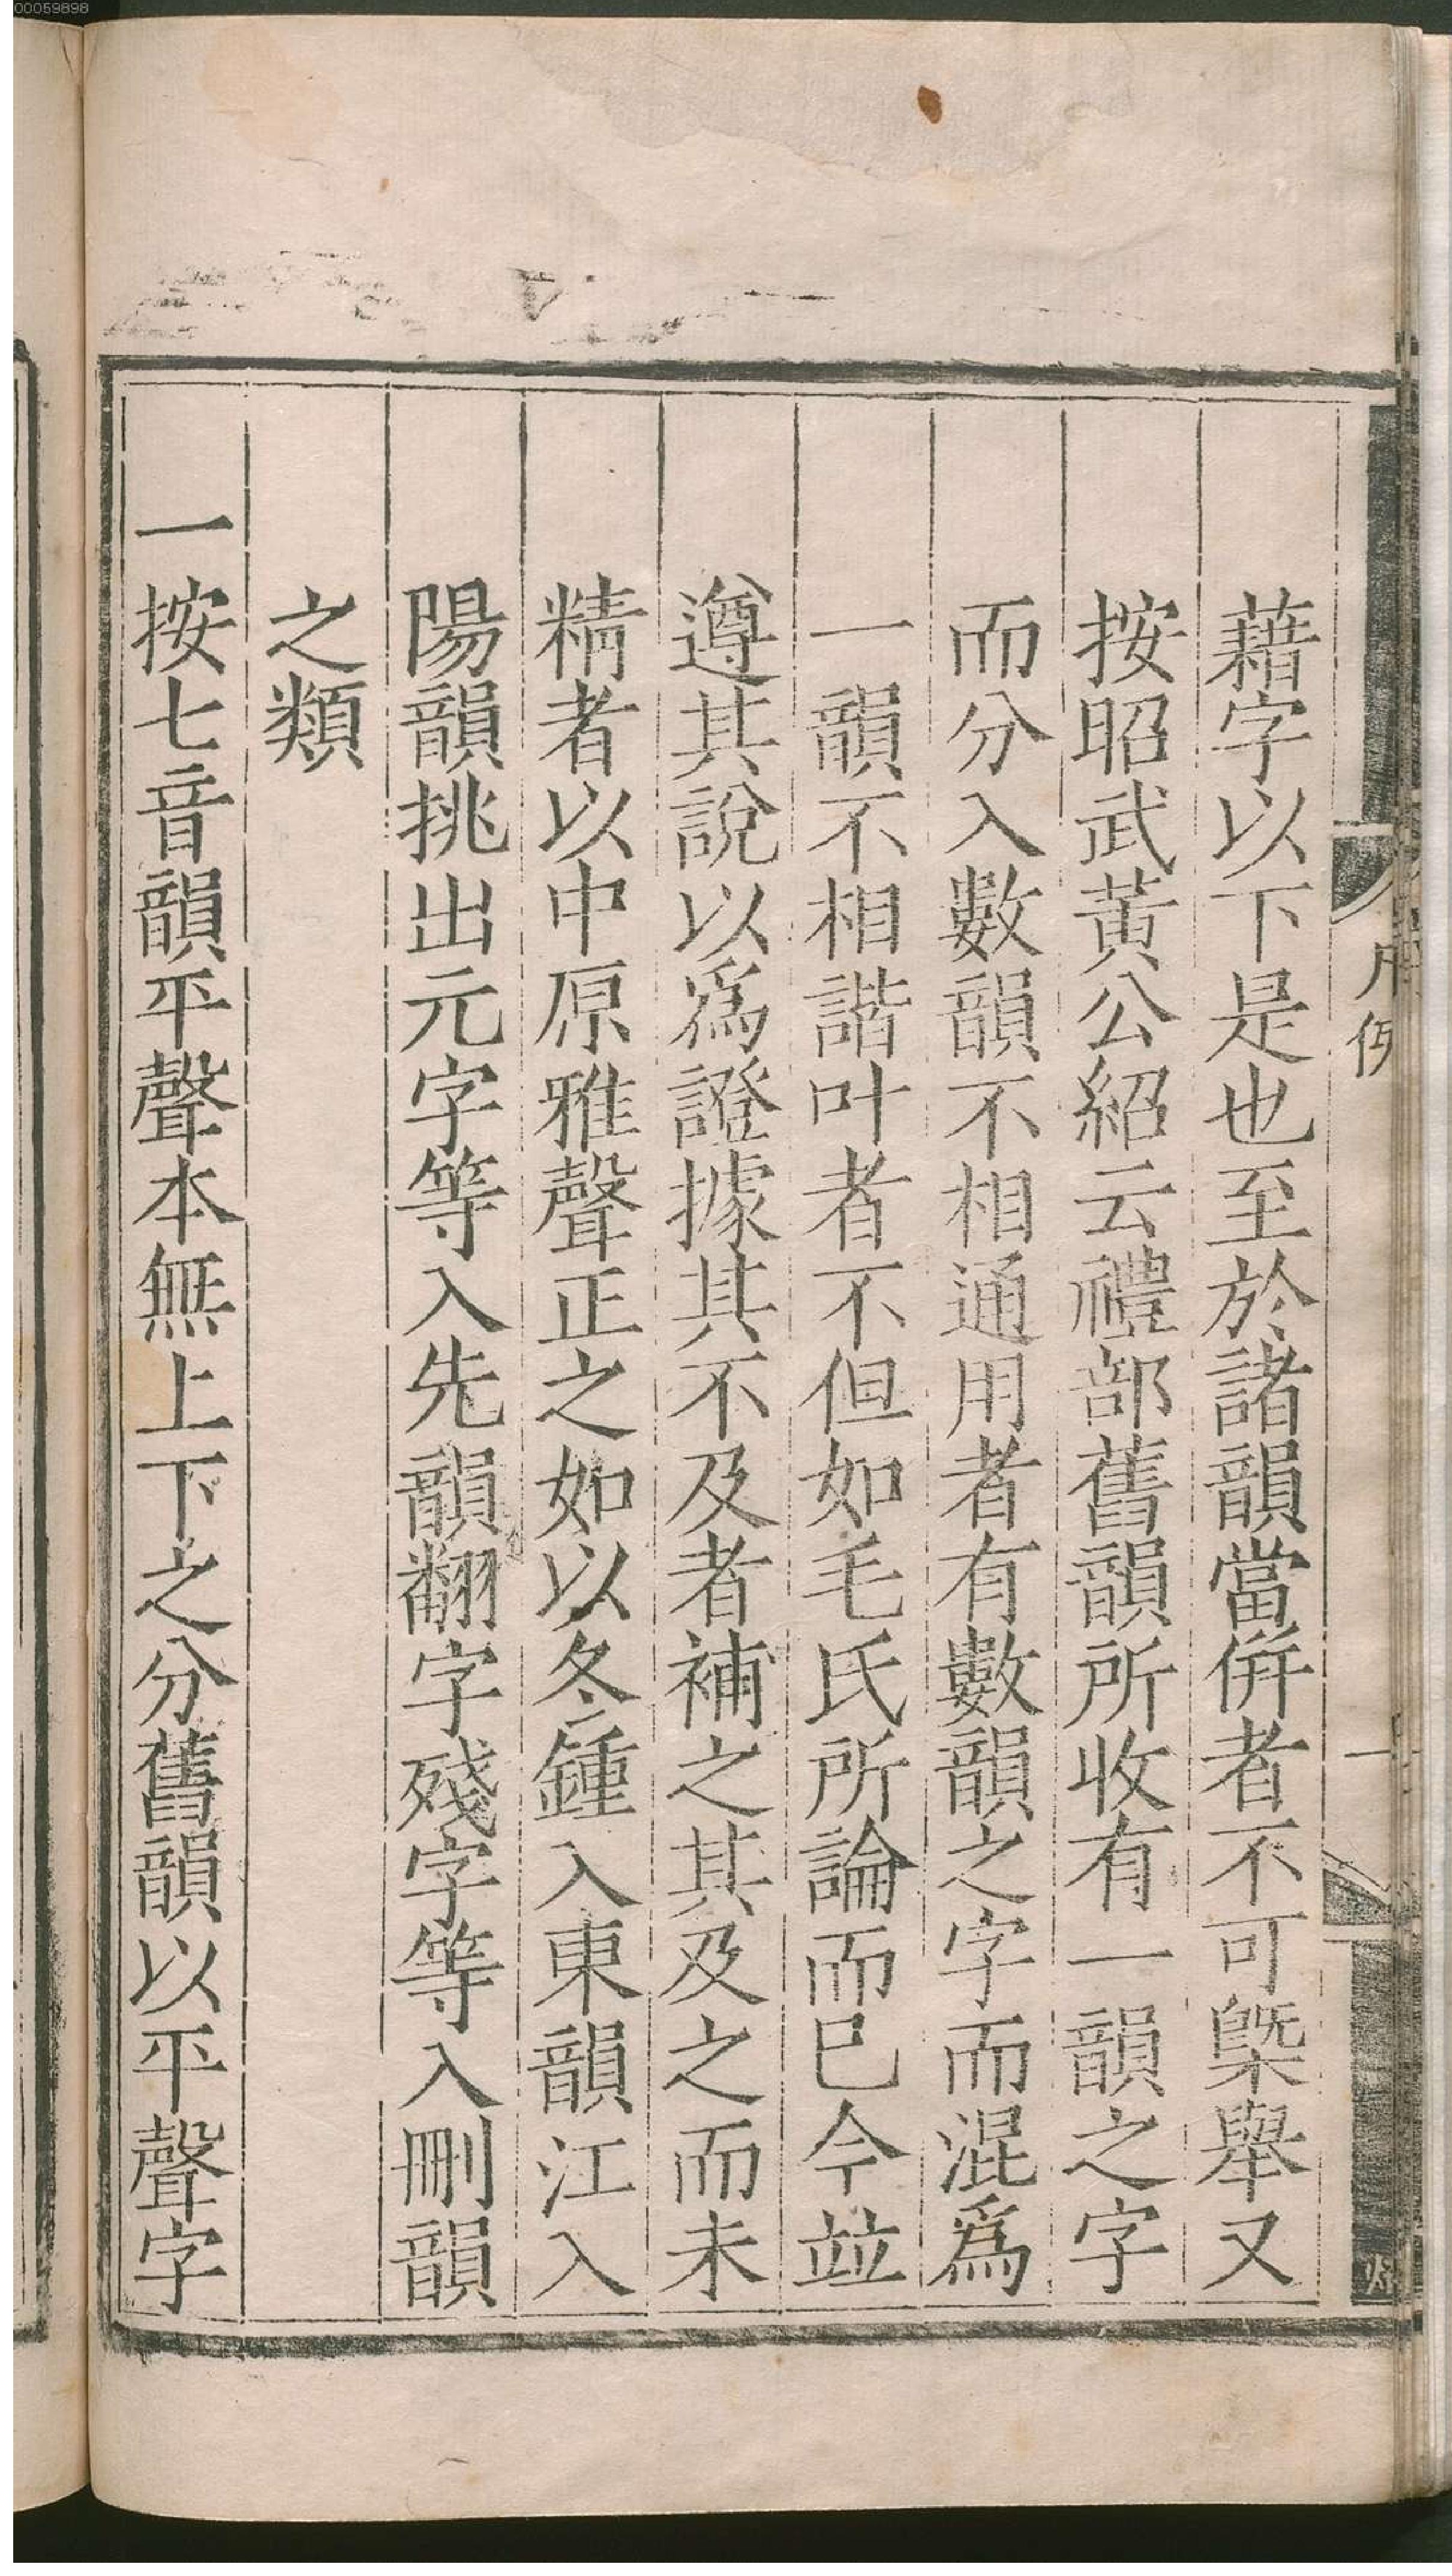 00059898
凡例
藉字以下是也至於諸韻當併者不可槩舉又
按昭武黃公紹云禮部舊韻所收有一韻之字
而分入數韻不相通用者有數韻之字而混爲
一韻不相諧叶者不但如毛氏所論而已今竝
遵其說以爲證據其不及者補之其及之而未
精者以中原雅聲正之如以冬鍾入東韻江入
陽韻挑出元字等入先韻翻字殘字等入刪韻
之類
一按七音韻平聲本無上下之分舊韻以平聲字